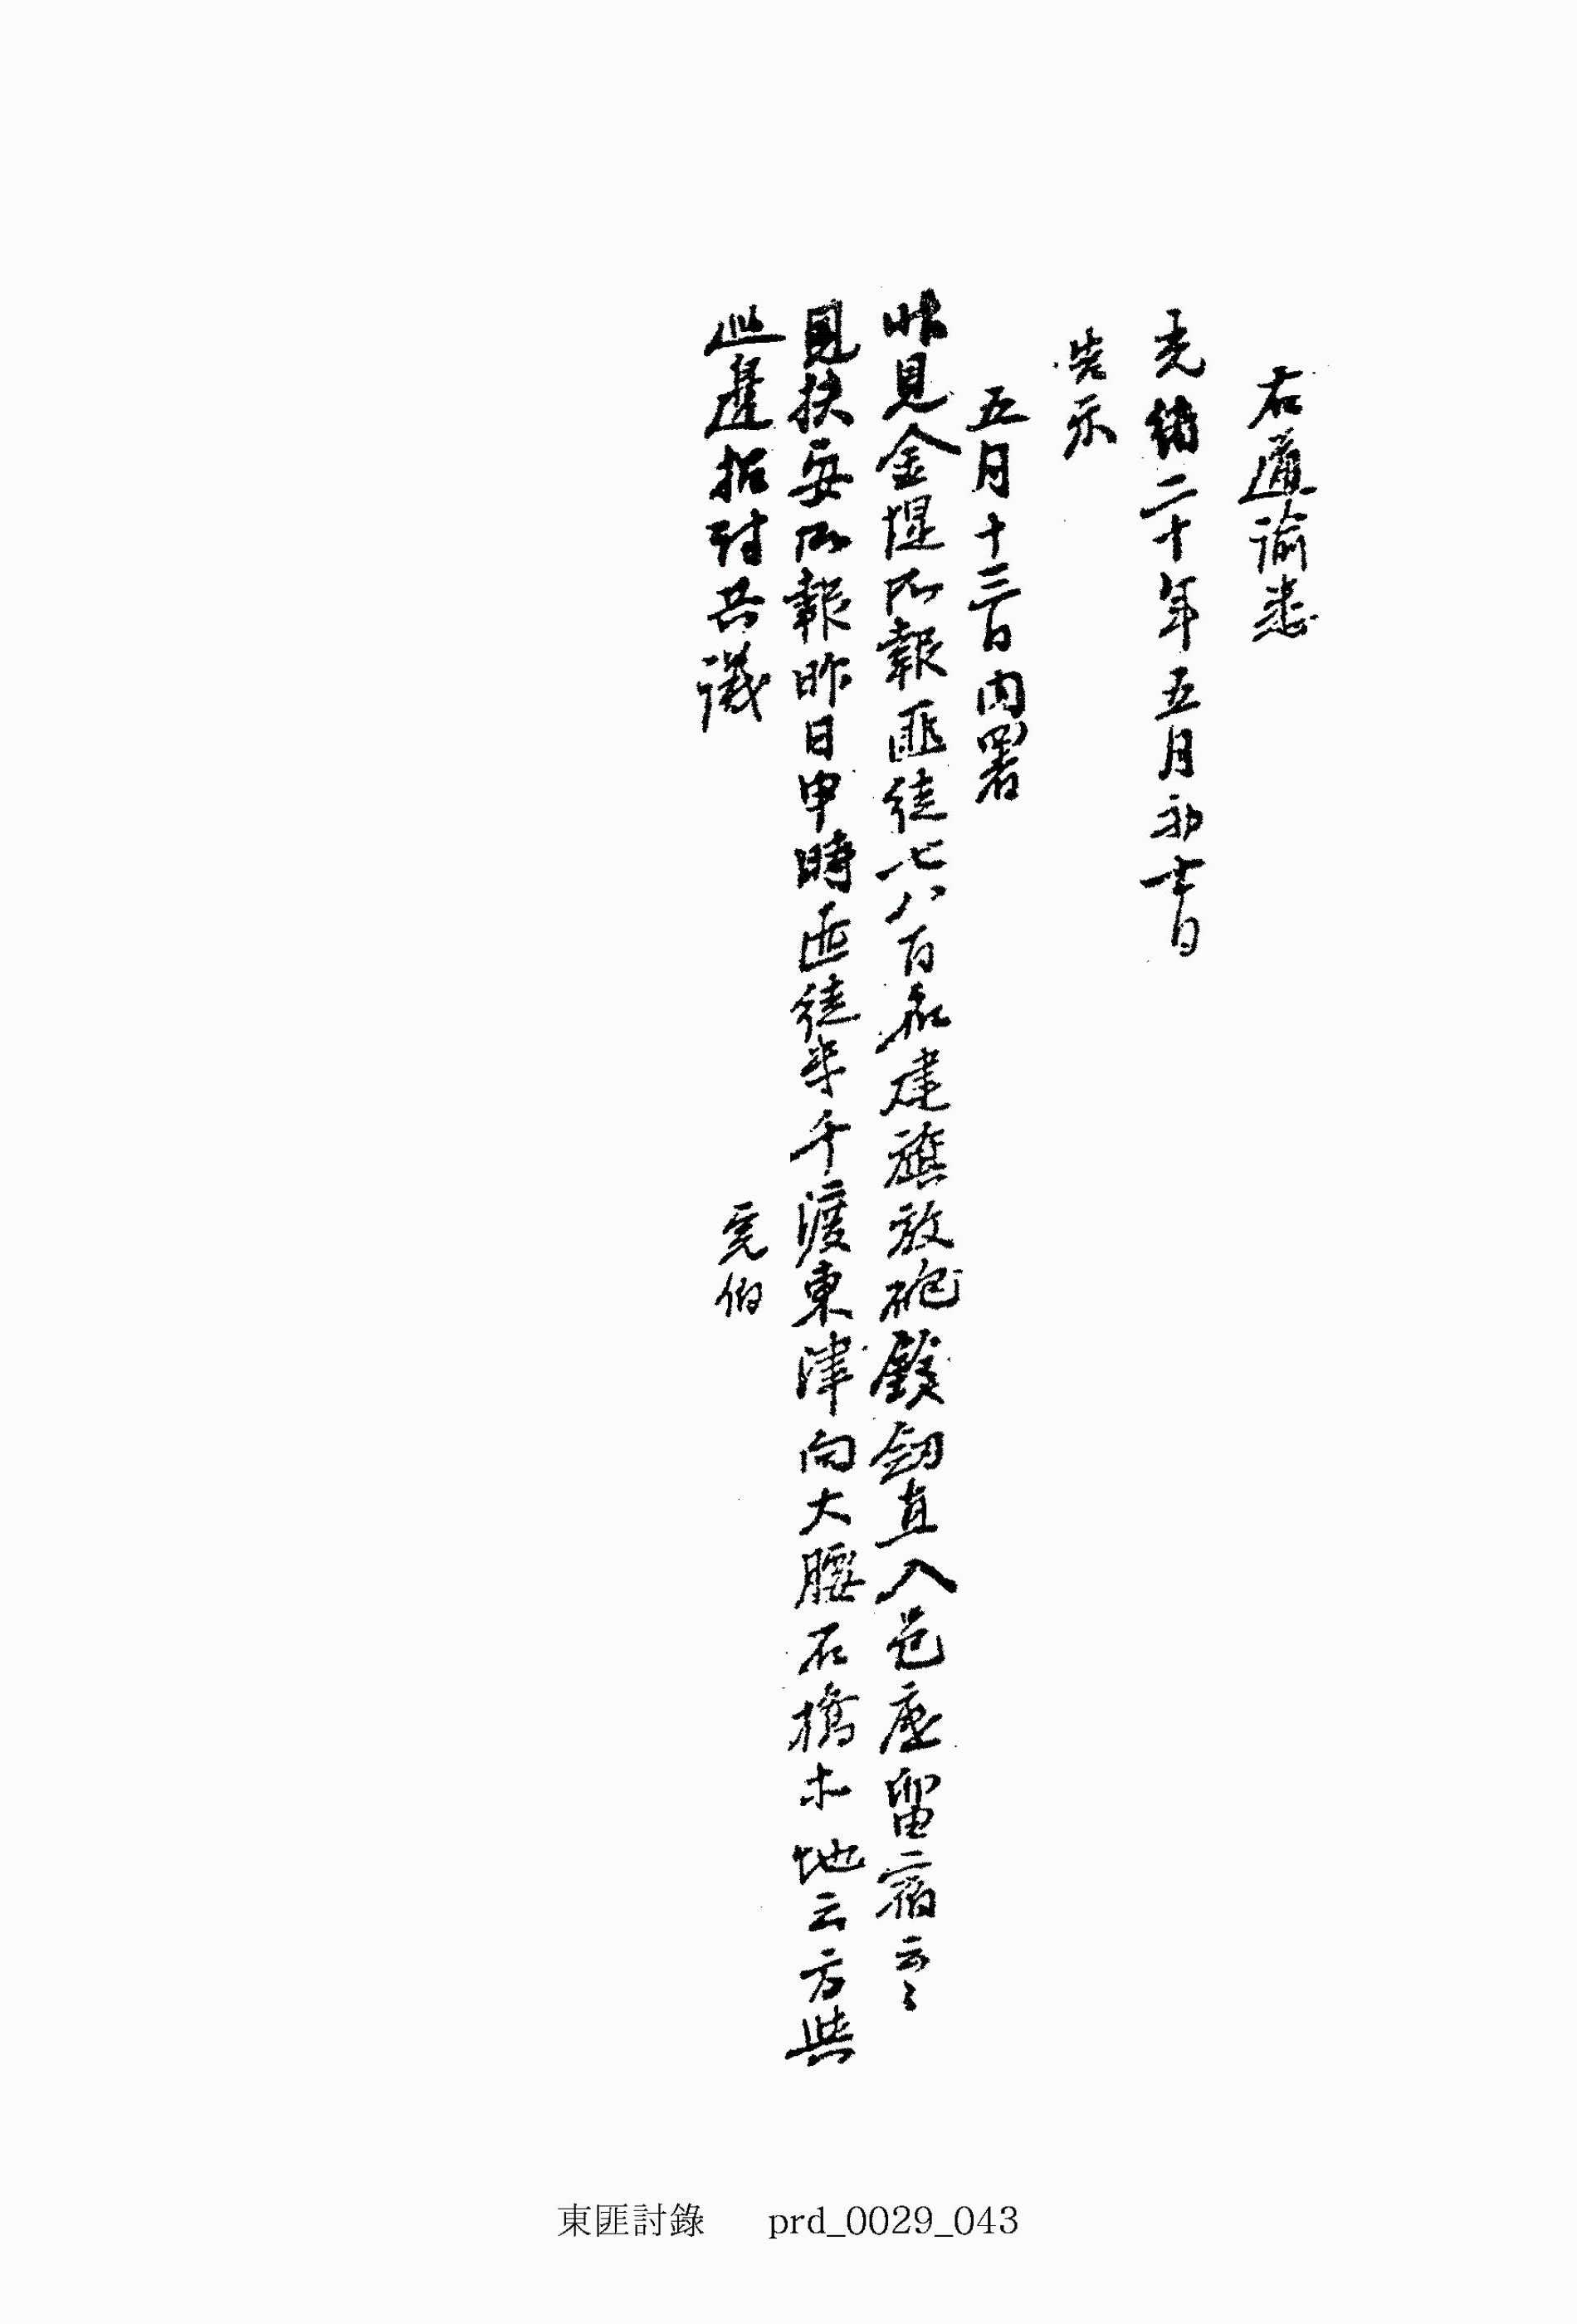 右遍諭悉
光緒二十年五月初十日
告示
五月十三日內署
昨見金堤所報匪徒七八百名建旗放砲 劒直入邑底留宿云云
見扶安所報昨日申時匪徒半千渡東津向大腰石橋木地云方與
巡邊招討共議
完伯
東匪討錄 prd_0029_043